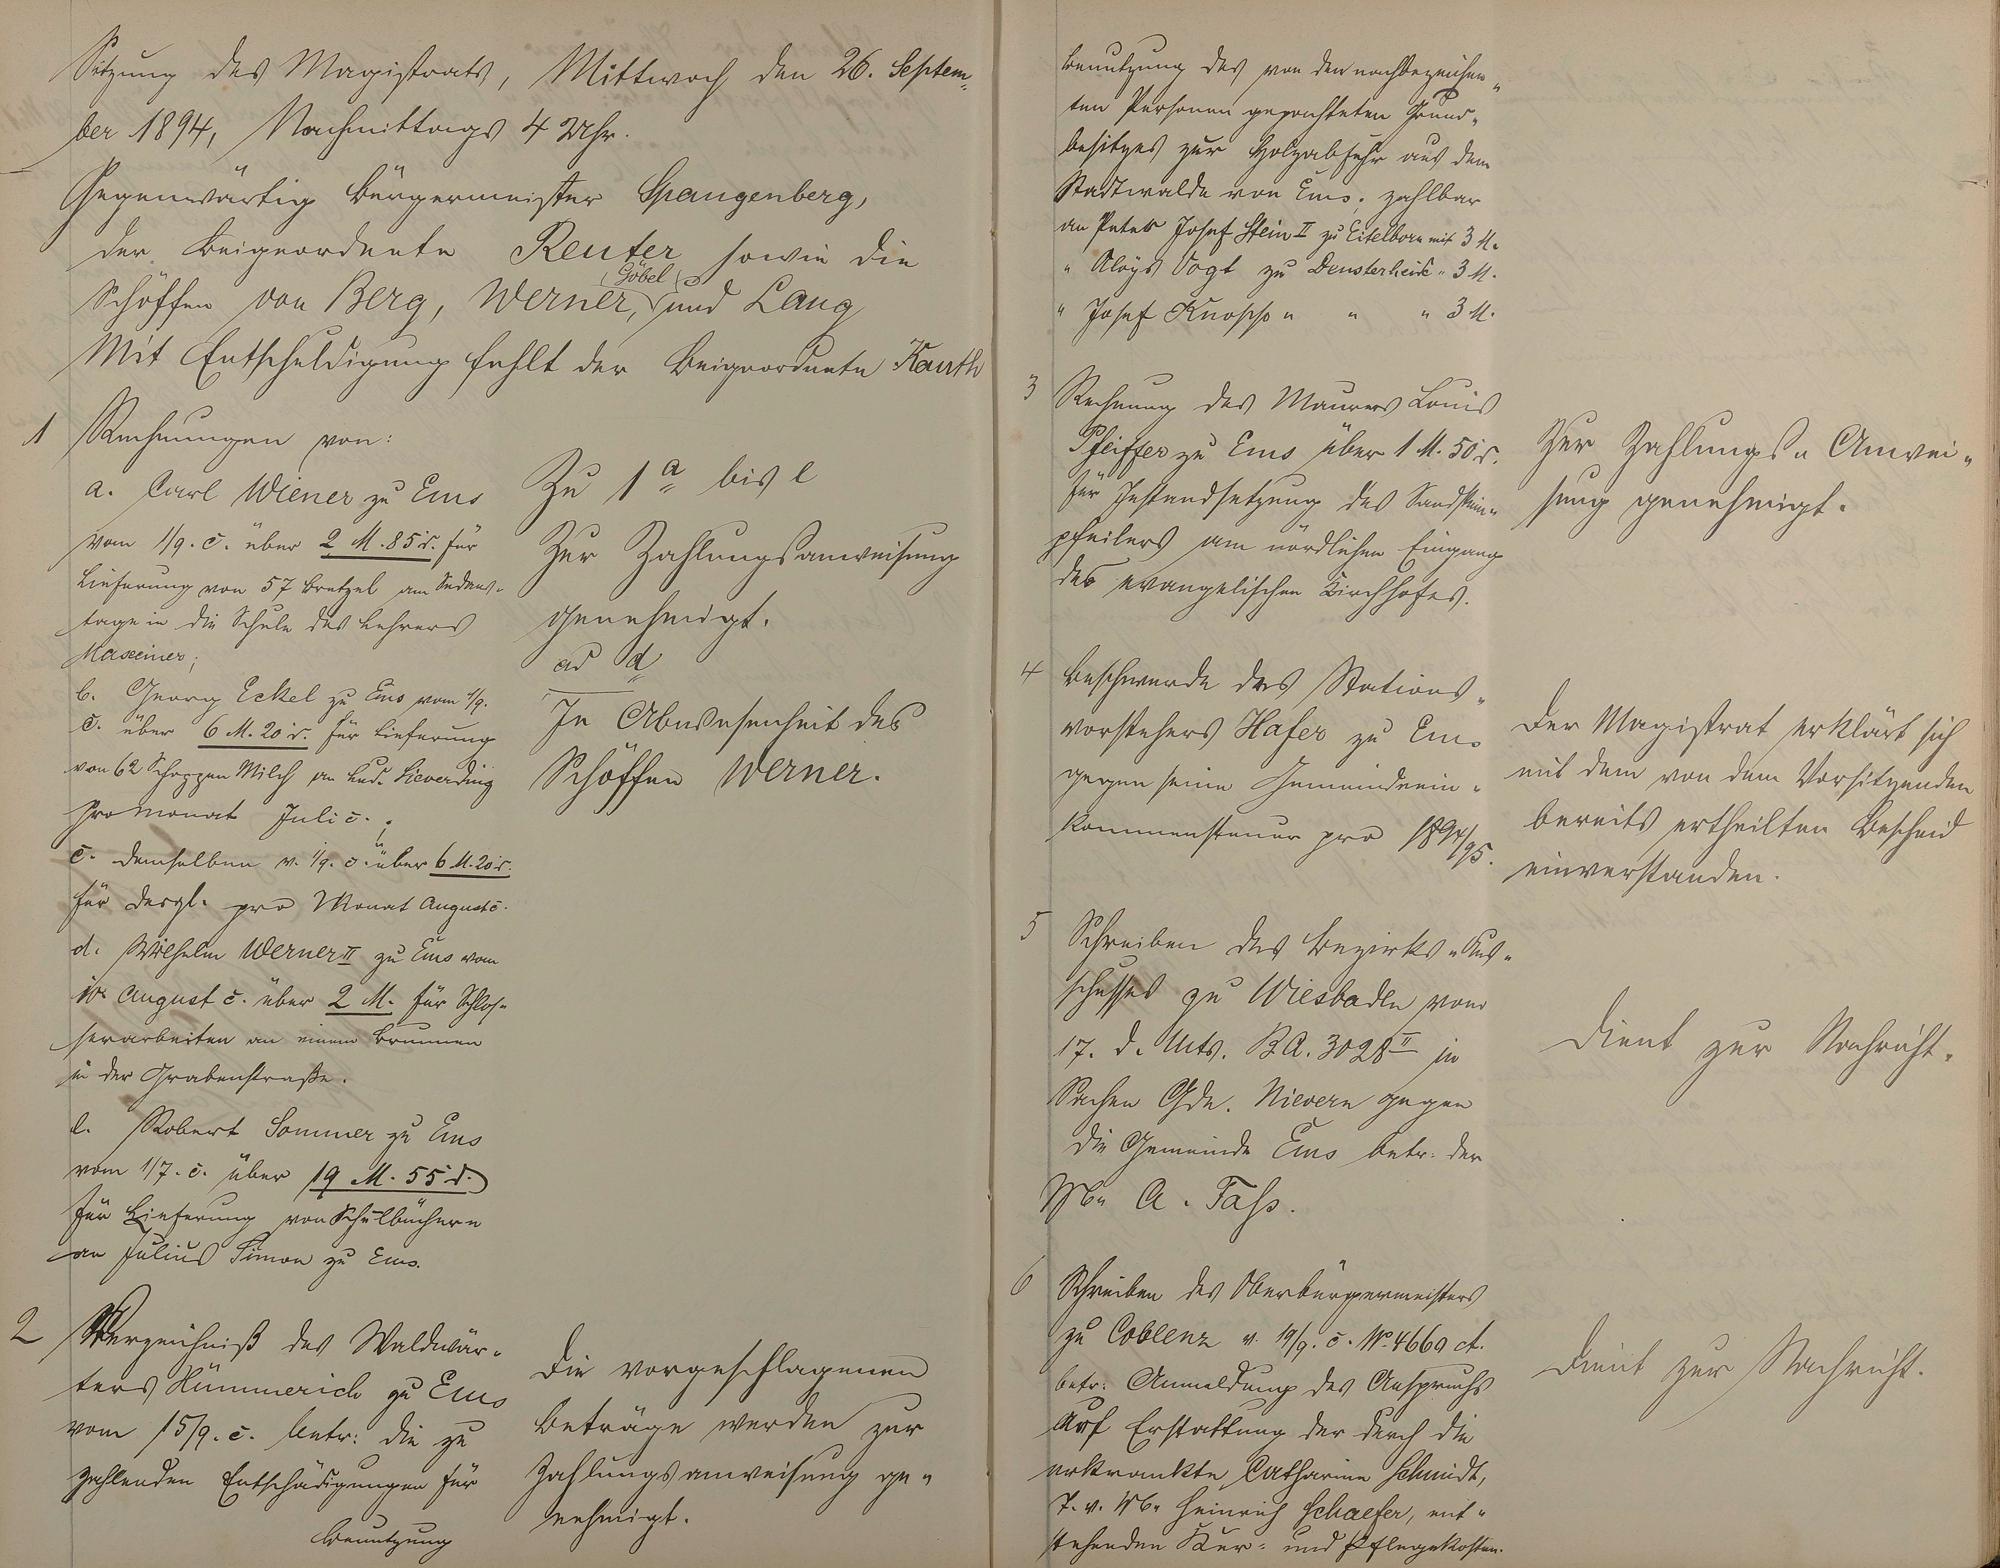 Sitzung des Magistrats, Mittwoch den 26. Septem-
ber 1894, Nachmittags 4 Uhr.
Gegenwärtig Bürgermeister Spangenberg,
der Beigeordnete Reuter sowie die
Göbel
Schöffen von Berg, Werner, und Lang
Mit Entschuldigung fehlt der Beigeordnete Kauth
1 Rechnungen von:
a. Carl Wiener zu Ems
vom 1/9. c. über 2 M. 85 d. für
Lieferung von 57 Bretzel am Sedans-
tage in die Schule des Lehrers
Maxeiner;
b. Georg Eckel zu Ems vom 1/9.
c. über 6 M. 20 d. für Lieferung
von 62 Schoppen Milch an Lud. Sieverding
pro Monat Juli c.;
c. demselben v. 1/9. c. über 6 M. 20 d.
für desgl. pro Monat August c.
d. Wilhelm Werner II zu Ems vom
10. August c. über 2 M. für Schlos-
serarbeiten an einem Brunnen
in der Grabenstraße.
e. Robert Sommer zu Ems
vom 1/7. c. über 19 M. 55 d.
für Lieferung von Schulbüchern
an Julius Simon zu Ems.
Zu 1 a bis e
Zur Zahlungsanweisung
genehmigt.
ad d
In Abwesenheit des
Schöffen Werner.
2 Verzeichniß des Waldwär-
ters Hümmerich zu Ems
vom 15/9. c. betr: die zu
zahlenden Entschädigungen für
Benutzung
Die vorgeschlagenen
Beträge werden zur
Zahlungsanweisung ge-
nehmigt.
Benutzung des von den nachbezeichne-
ten Personen gepachteten Grund-
besitzes zur Holzabfuhr aus dem
Stadtwalde von Ems, zahlbar
an Peter Josef Stein II zu Eitelborn mit 3 M.
" Aloys Vogt zu Densterheide " 3 M.
" Josef Knopp " " " 3 M.
3 Rechnung des Maurers Louis
Pfeiffer zu Ems über 1 M. 50 d.
für Instandsetzung des Sandstein-
pfeilers am nördlichen Eingang
des evangelischen Kirchhofes.
Zur Zahlungs-Anwei-
sung genehmigt.
4 Beschwerde des Stations-
vorstehers Hafer zu Ems
gegen seine Gemeindeein-
kommensteuer pro 1894/95.
Der Magistrat erklärt sich
mit dem von dem Vorsitzenden
bereits ertheilten Bescheid
einverstanden.
5 Schreiben des Bezirks-Aus-
schusses zu Wiesbaden vom
17. d. Mts. B.A. 3028 II in
Sachen Gde. Nievern gegen
die Gemeinde Ems betr. der
Wwe A. Faß.
Dient zur Nachricht.
6 Schreiben des Oberbürgermeisters
zu Coblenz v. 19/9. c. No. 4660 A.
betr: Anmeldung des Anspruchs
auf Erstattung der durch die
erkrankte Catharine Schmidt,
T. v. Wwe Heinrich Schaefer, ent-
stehenden Kur- und Pflegekosten.
Dient zur Nachricht.